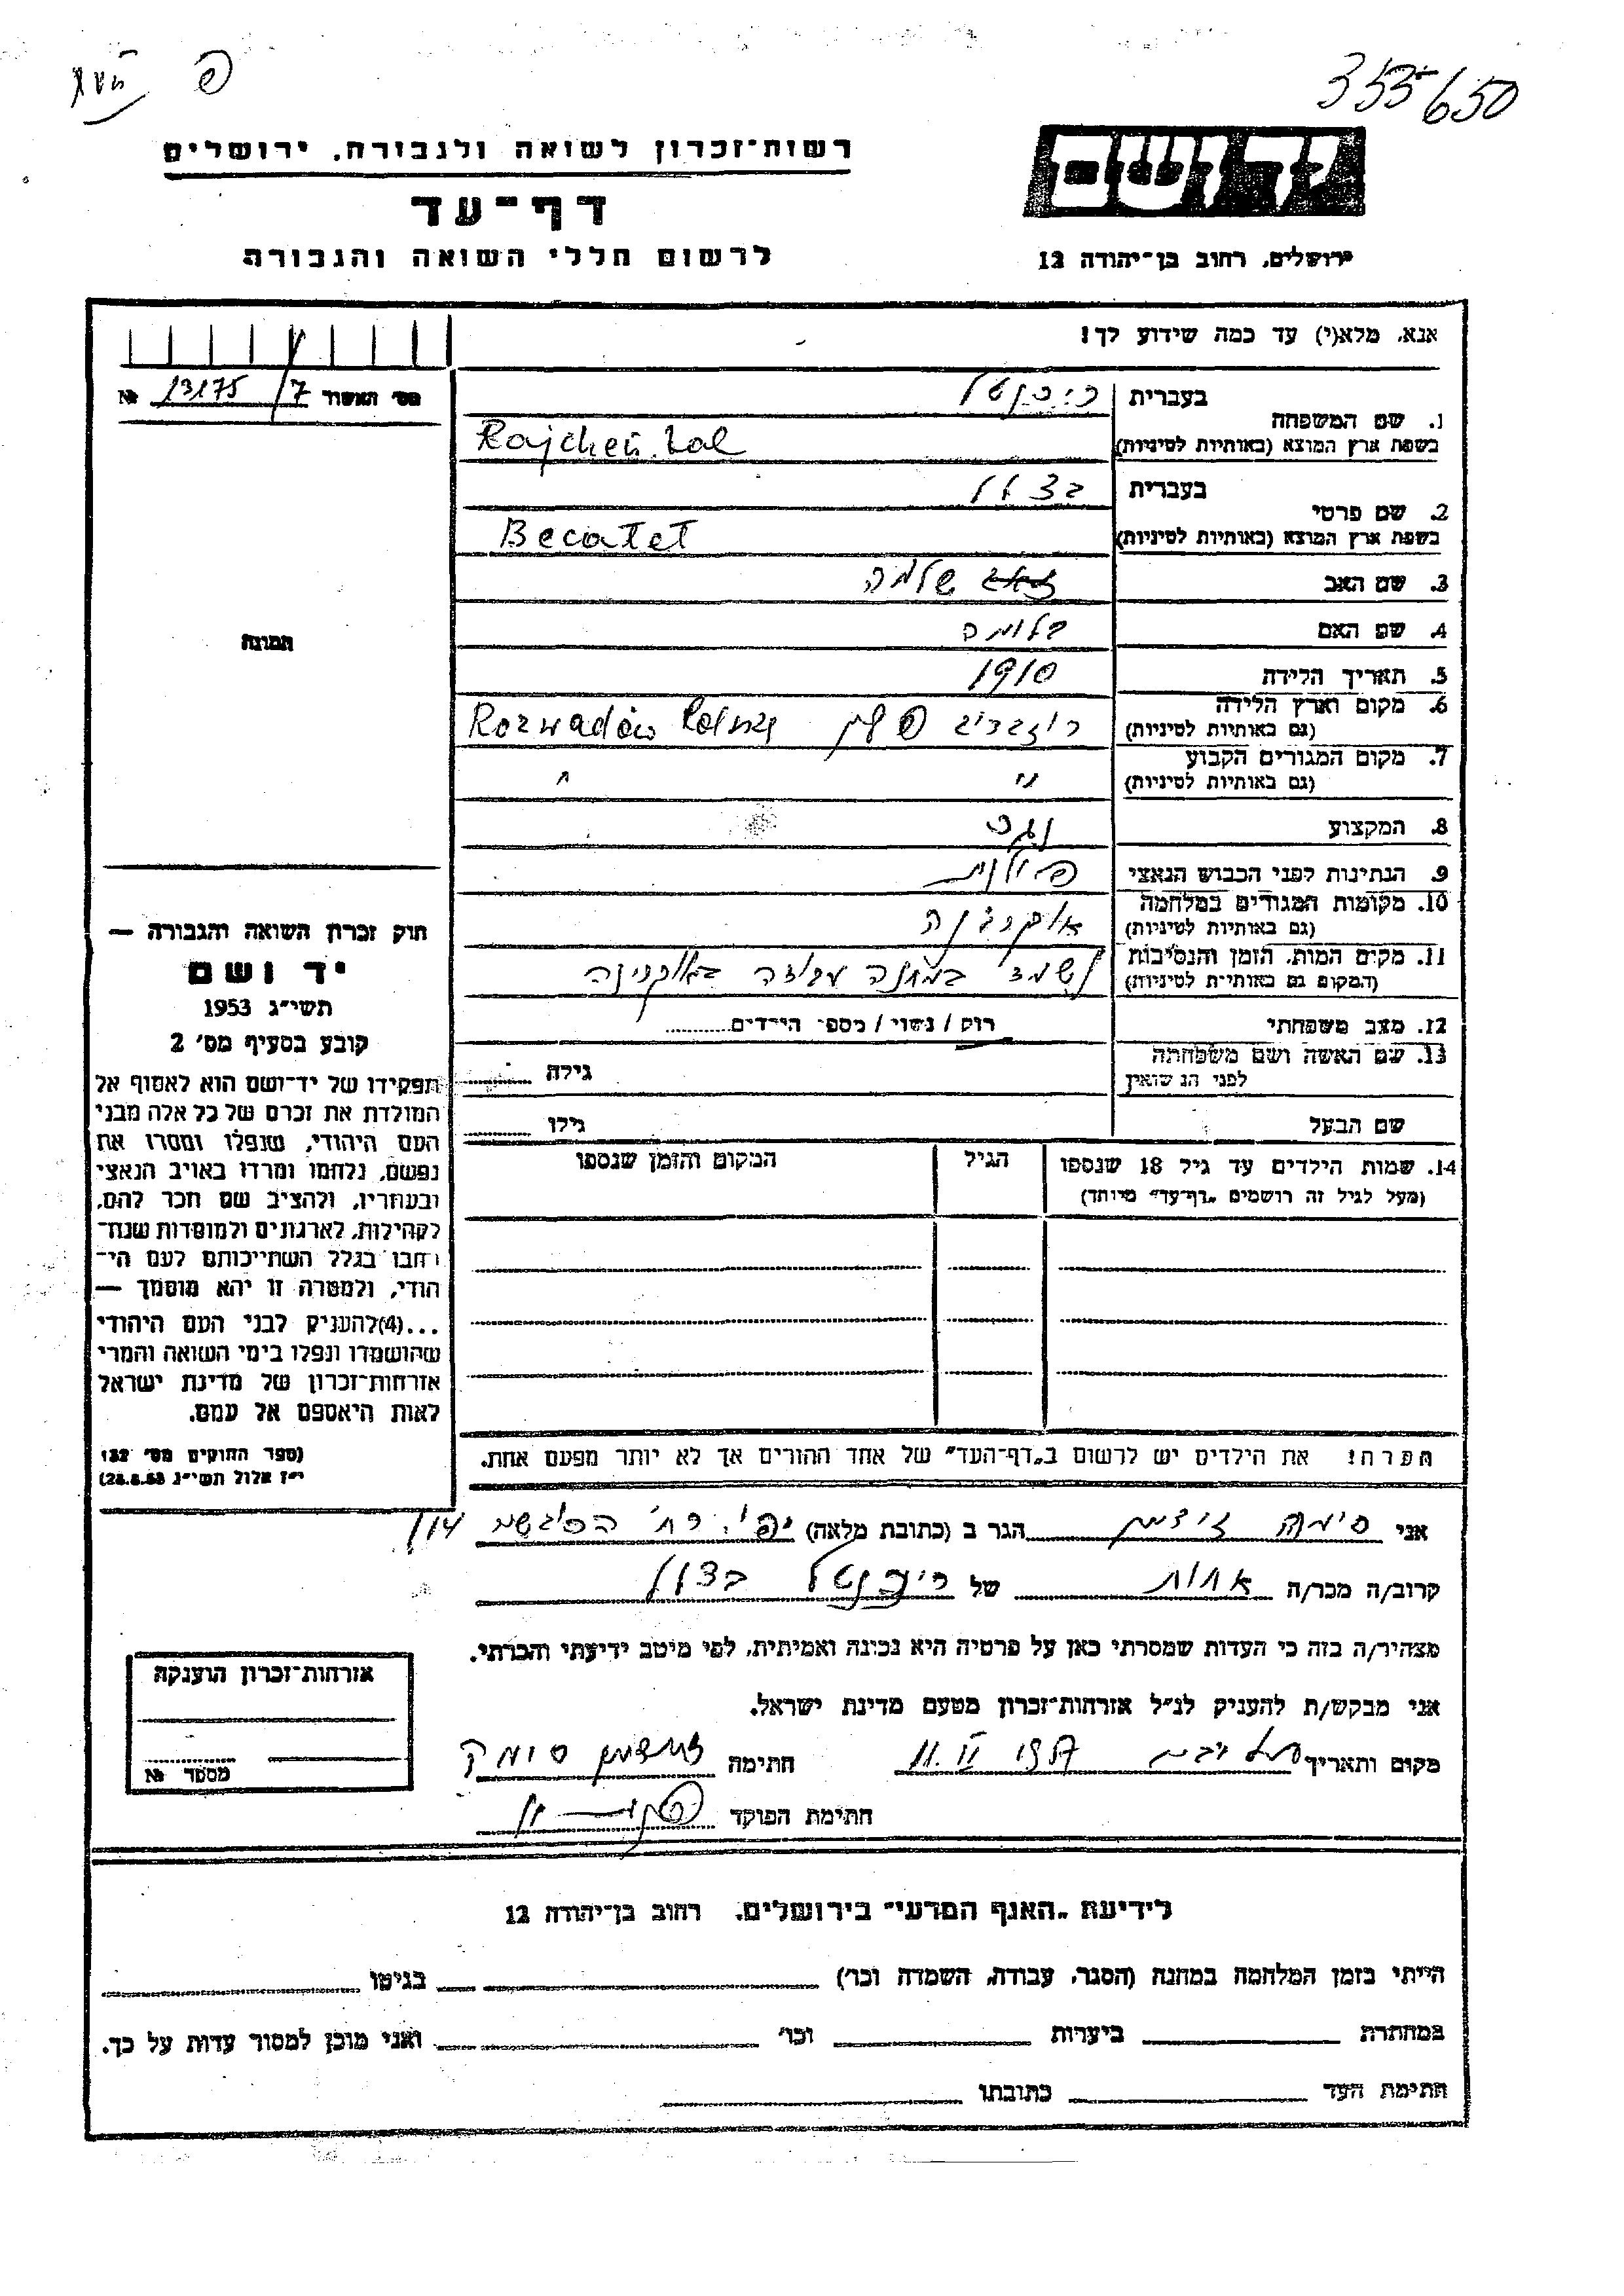 353650
רשות־זכרון לשואה ולגבורה, ירושלים
דף־עד
לרשום חללי השואה והגבורה
יד ושם
ירושלים, רחוב בן־יהודה 12
אנא, מלא(י) עד כמה שידוע לך!
מס' האשור 13175/7 №
תמונה
1. שם המשפחה
בעברית
בשפת ארץ המוצא (באותיות לטיניות) Rajchental
2. שם פרטי
בעברית בצלל
בשפת ארץ המוצא (באותיות לטיניות) Becalel
3. שם האב שלמה
4. שם האם בלומה
5. תאריך הלידה 1910
6. מקום וארץ הלידה
(גם באותיות לטיניות) רוזבדוב פולין Rozwadów Polska
7. מקום המגורים הקבוע
(גם באותיות לטיניות) " "
8. המקצוע נגר
9. הנתינות לפני הכבוש הנאצי פולנית
10. מקומות המגורים במלחמה
(גם באותיות לטיניות) אוקרינה
11. מקום המות, הזמן והנסיבות
(המקום גם באותיות לטיניות) נשמד במחנה עבודה באוקרינה
12. מצב משפחתי רוק / נשוי / מספר הילדים
13. שם האשה ושם משפחתה
לפני הנשואין גילה
שם הבעל גילו
14. שמות הילדים עד גיל 18 שנספו הגיל המקום והזמן שנספו
(מעל לגיל זה רושמים „דף־עד" מיוחד)
הערה: את הילדים יש לרשום ב„דף־העד" של אחד ההורים אך לא יותר מפעם אחת.
חוק זכרון השואה והגבורה —
יד ושם
תשי"ג 1953
קובע בסעיף מס' 2
תפקידו של יד־ושם הוא לאסוף אל
המולדת את זכרם של כל אלה מבני
העם היהודי, שנפלו ומסרו את
נפשם, נלחמו ומרדו באויב הנאצי
ובעוזריו, ולהציב שם וזכר להם,
לקהילות, לארגונים ולמוסדות שנח־
רבו בגלל השתייכותם לעם הי־
הודי, ולמטרה זו יהא מוסמך —
...(4)להעניק לבני העם היהודי
שהושמדו ונפלו בימי השואה והמרי
אזרחות־זכרון של מדינת ישראל
לאות היאספם אל עמם.
(ספר החוקים מס' 132
י"ז אלול תשי"ג 28.8.53)
אני סימה זידמן הגר ב (כתובת מלאה) יפו, רח'
קרוב/ה מכר/ה אחות של רייכנטל בצלל
מצהיר/ה בזה כי העדות שמסרתי כאן על פרטיה היא נכונה ואמיתית, לפי מיטב ידיעתי והכרתי.
אני מבקש/ת להעניק לנ"ל אזרחות־זכרון מטעם מדינת ישראל.
מקום ותאריך תל אביב 11.II 1957 חתימה זידמן סימה
חתימת הפוקד
אזרחות־זכרון הוענקה
מספר №
לידיעת „האגף המדעי" בירושלים, רחוב בן־יהודה 12
הייתי בזמן המלחמה במחנה (הסגר, עבודה, השמדה וכו') בגיטו
במחתרת ביערות וכו' ואני מוכן למסור עדות על כך.
חתימת העד כתובתו